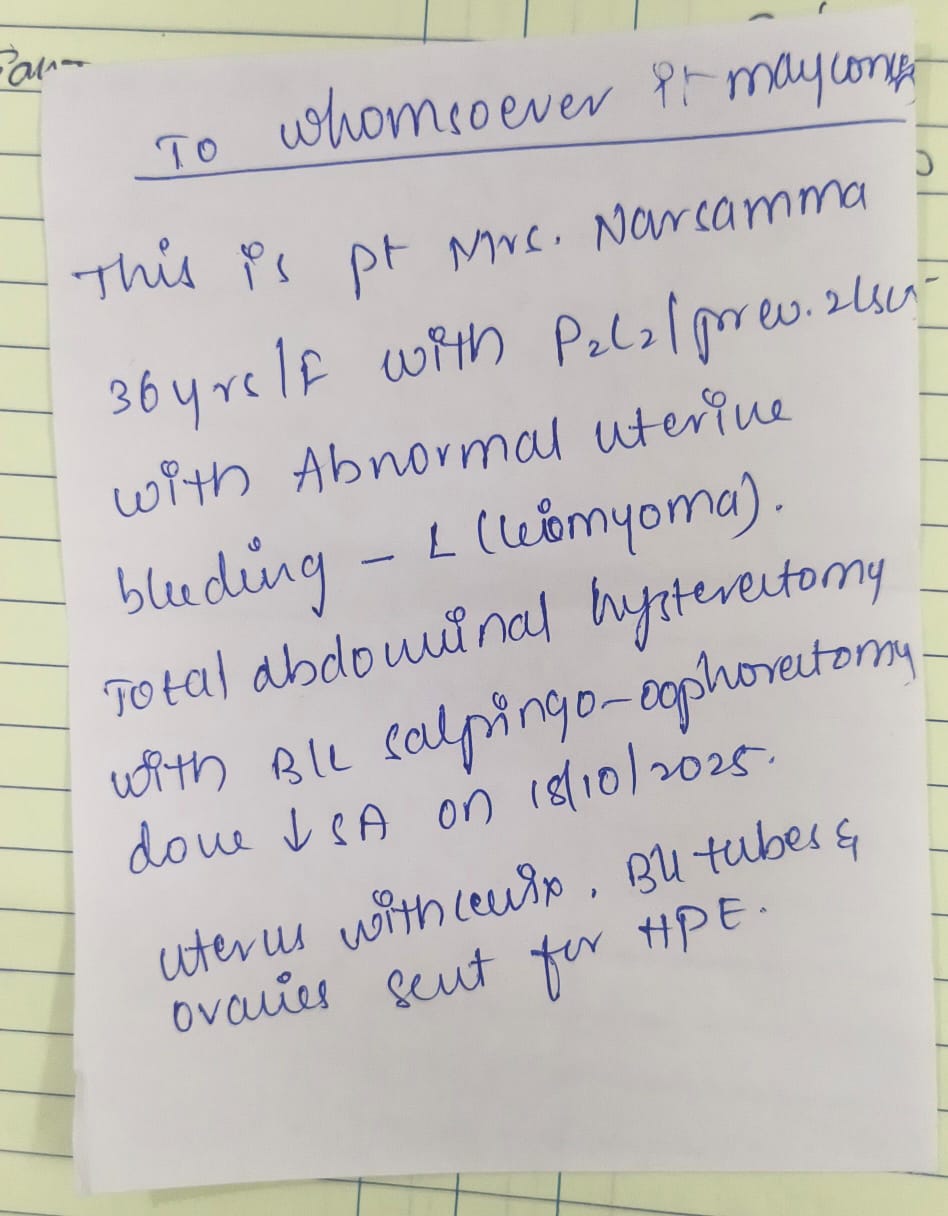 To whomsoever it may conc
This is pt Mrs. Narsamma
36yrs/F with P2L2/prev. 2LSCS
with Abnormal uterine
bleeding - L (leiomyoma).
Total abdominal hysterectomy
with B/L salpingo-oophorectomy
done ↓ SA on 18/10/2025.
uterus with cervix, B/L tubes &
ovaries sent for HPE.